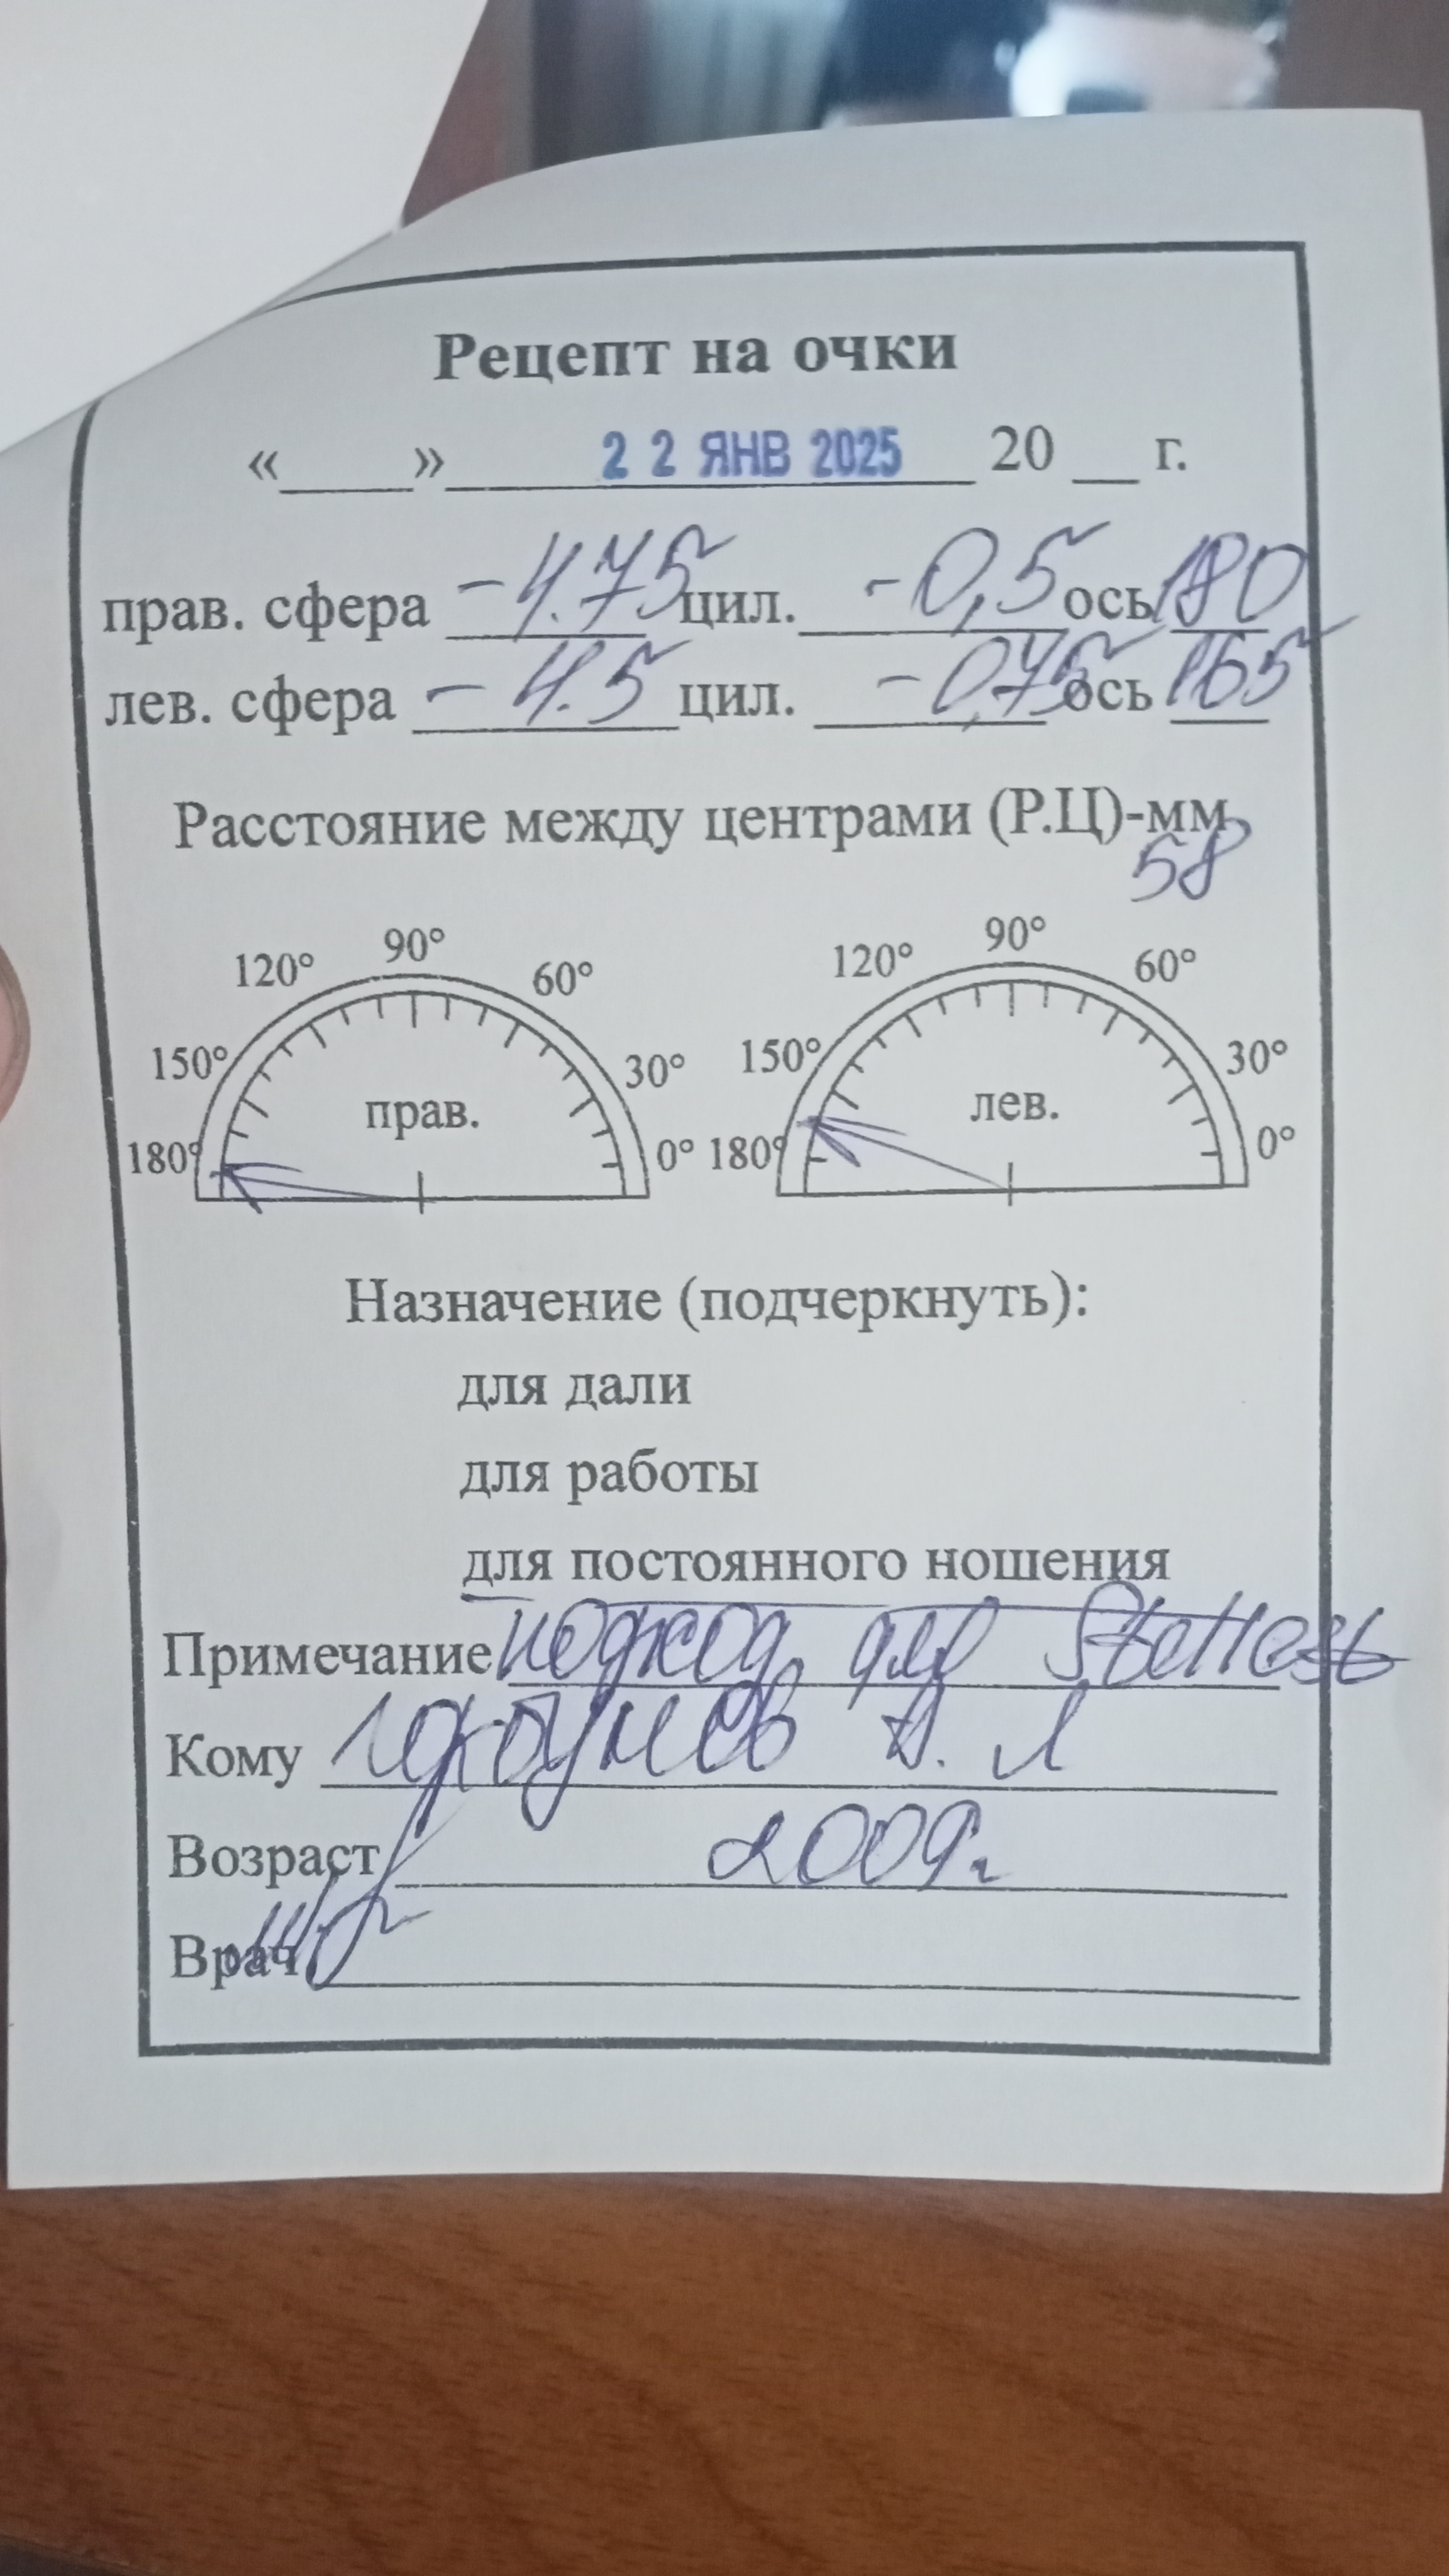 Рецепт на очки
«____» 22 ЯНВ 2025 20 __ г.
прав. сфера -4.75 цил. -0,5 ось 180
лев. сфера -4.5 цил. -0,75 ось 165
Расстояние между центрами (Р.Ц)-мм
58
90° 90°
120° 60° 120° 60°
150° 30° 150° 30°
прав. лев.
180° 0° 180° 0°
Назначение (подчеркнуть):
для дали
для работы
для постоянного ношения
Примечание подход для Stellest
Кому
Возраст 2009г
Врач